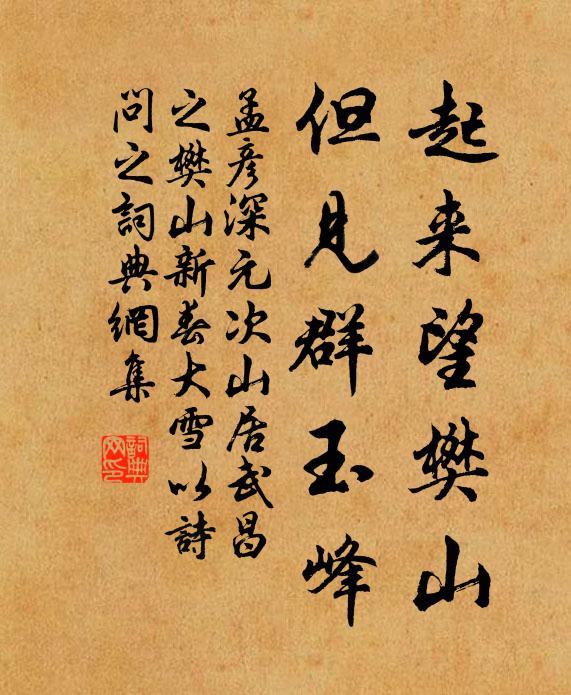 起来望樊山
但見群玉峰
孟彦深元次山居武昌
之樊山新春大雪以詩
問之詞典網集
詞典
网印